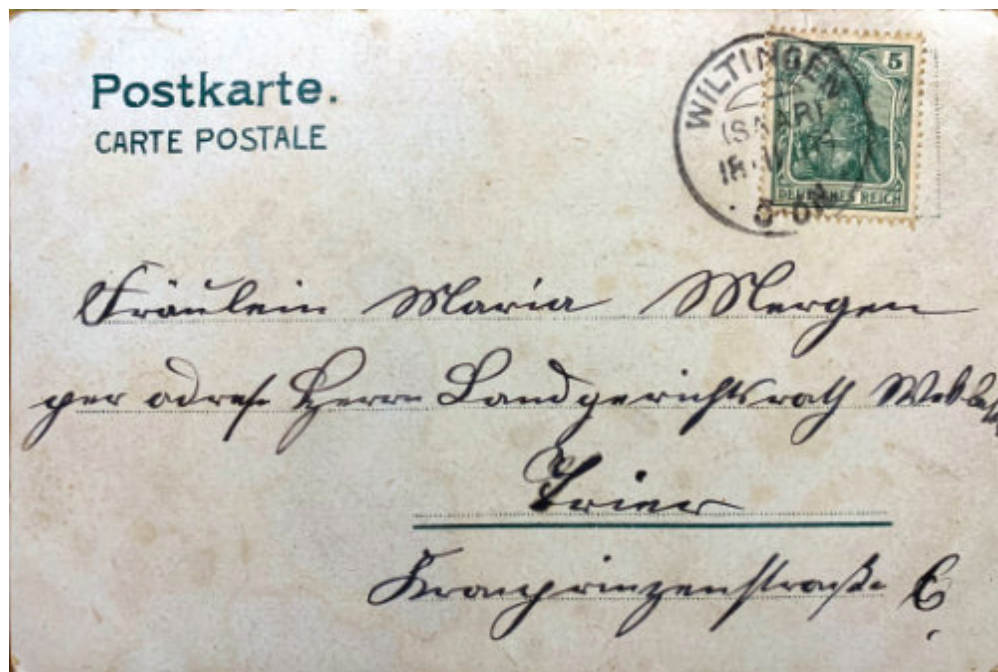 Postkarte.
CARTE POSTALE
WILTINGEN
(SAAR)
5
DEUTSCHES REICH
Fräulein Maria Mergen
per adres. Herrn Landgerichtsrath
Trier
Kronprinzenstraße 6